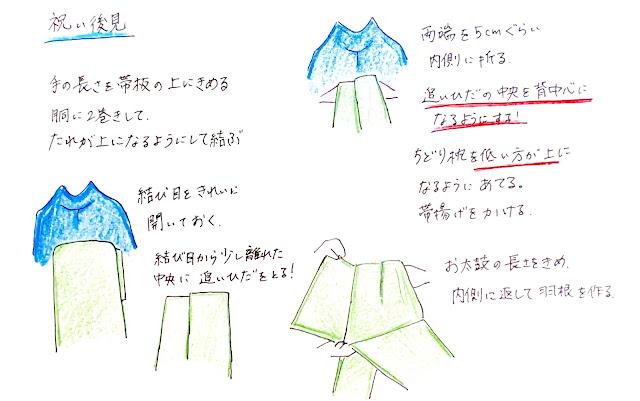 祝い後見
手の長さを帯板の上にきめる
胴に2巻きして、
たれが上になるようにして結ぶ
結び目をきれいに
開いておく、
結び目から少し離れた
中央に追いひだをとる!
両端を5cmぐらい
内側に折る、
追いひだの中央を背中心に
なるようにする!
ちどり枕を低い方が上に
なるようにあてる。
帯揚げをかける、
お太鼓の長さをきめ、
内側に返して羽根を作る、